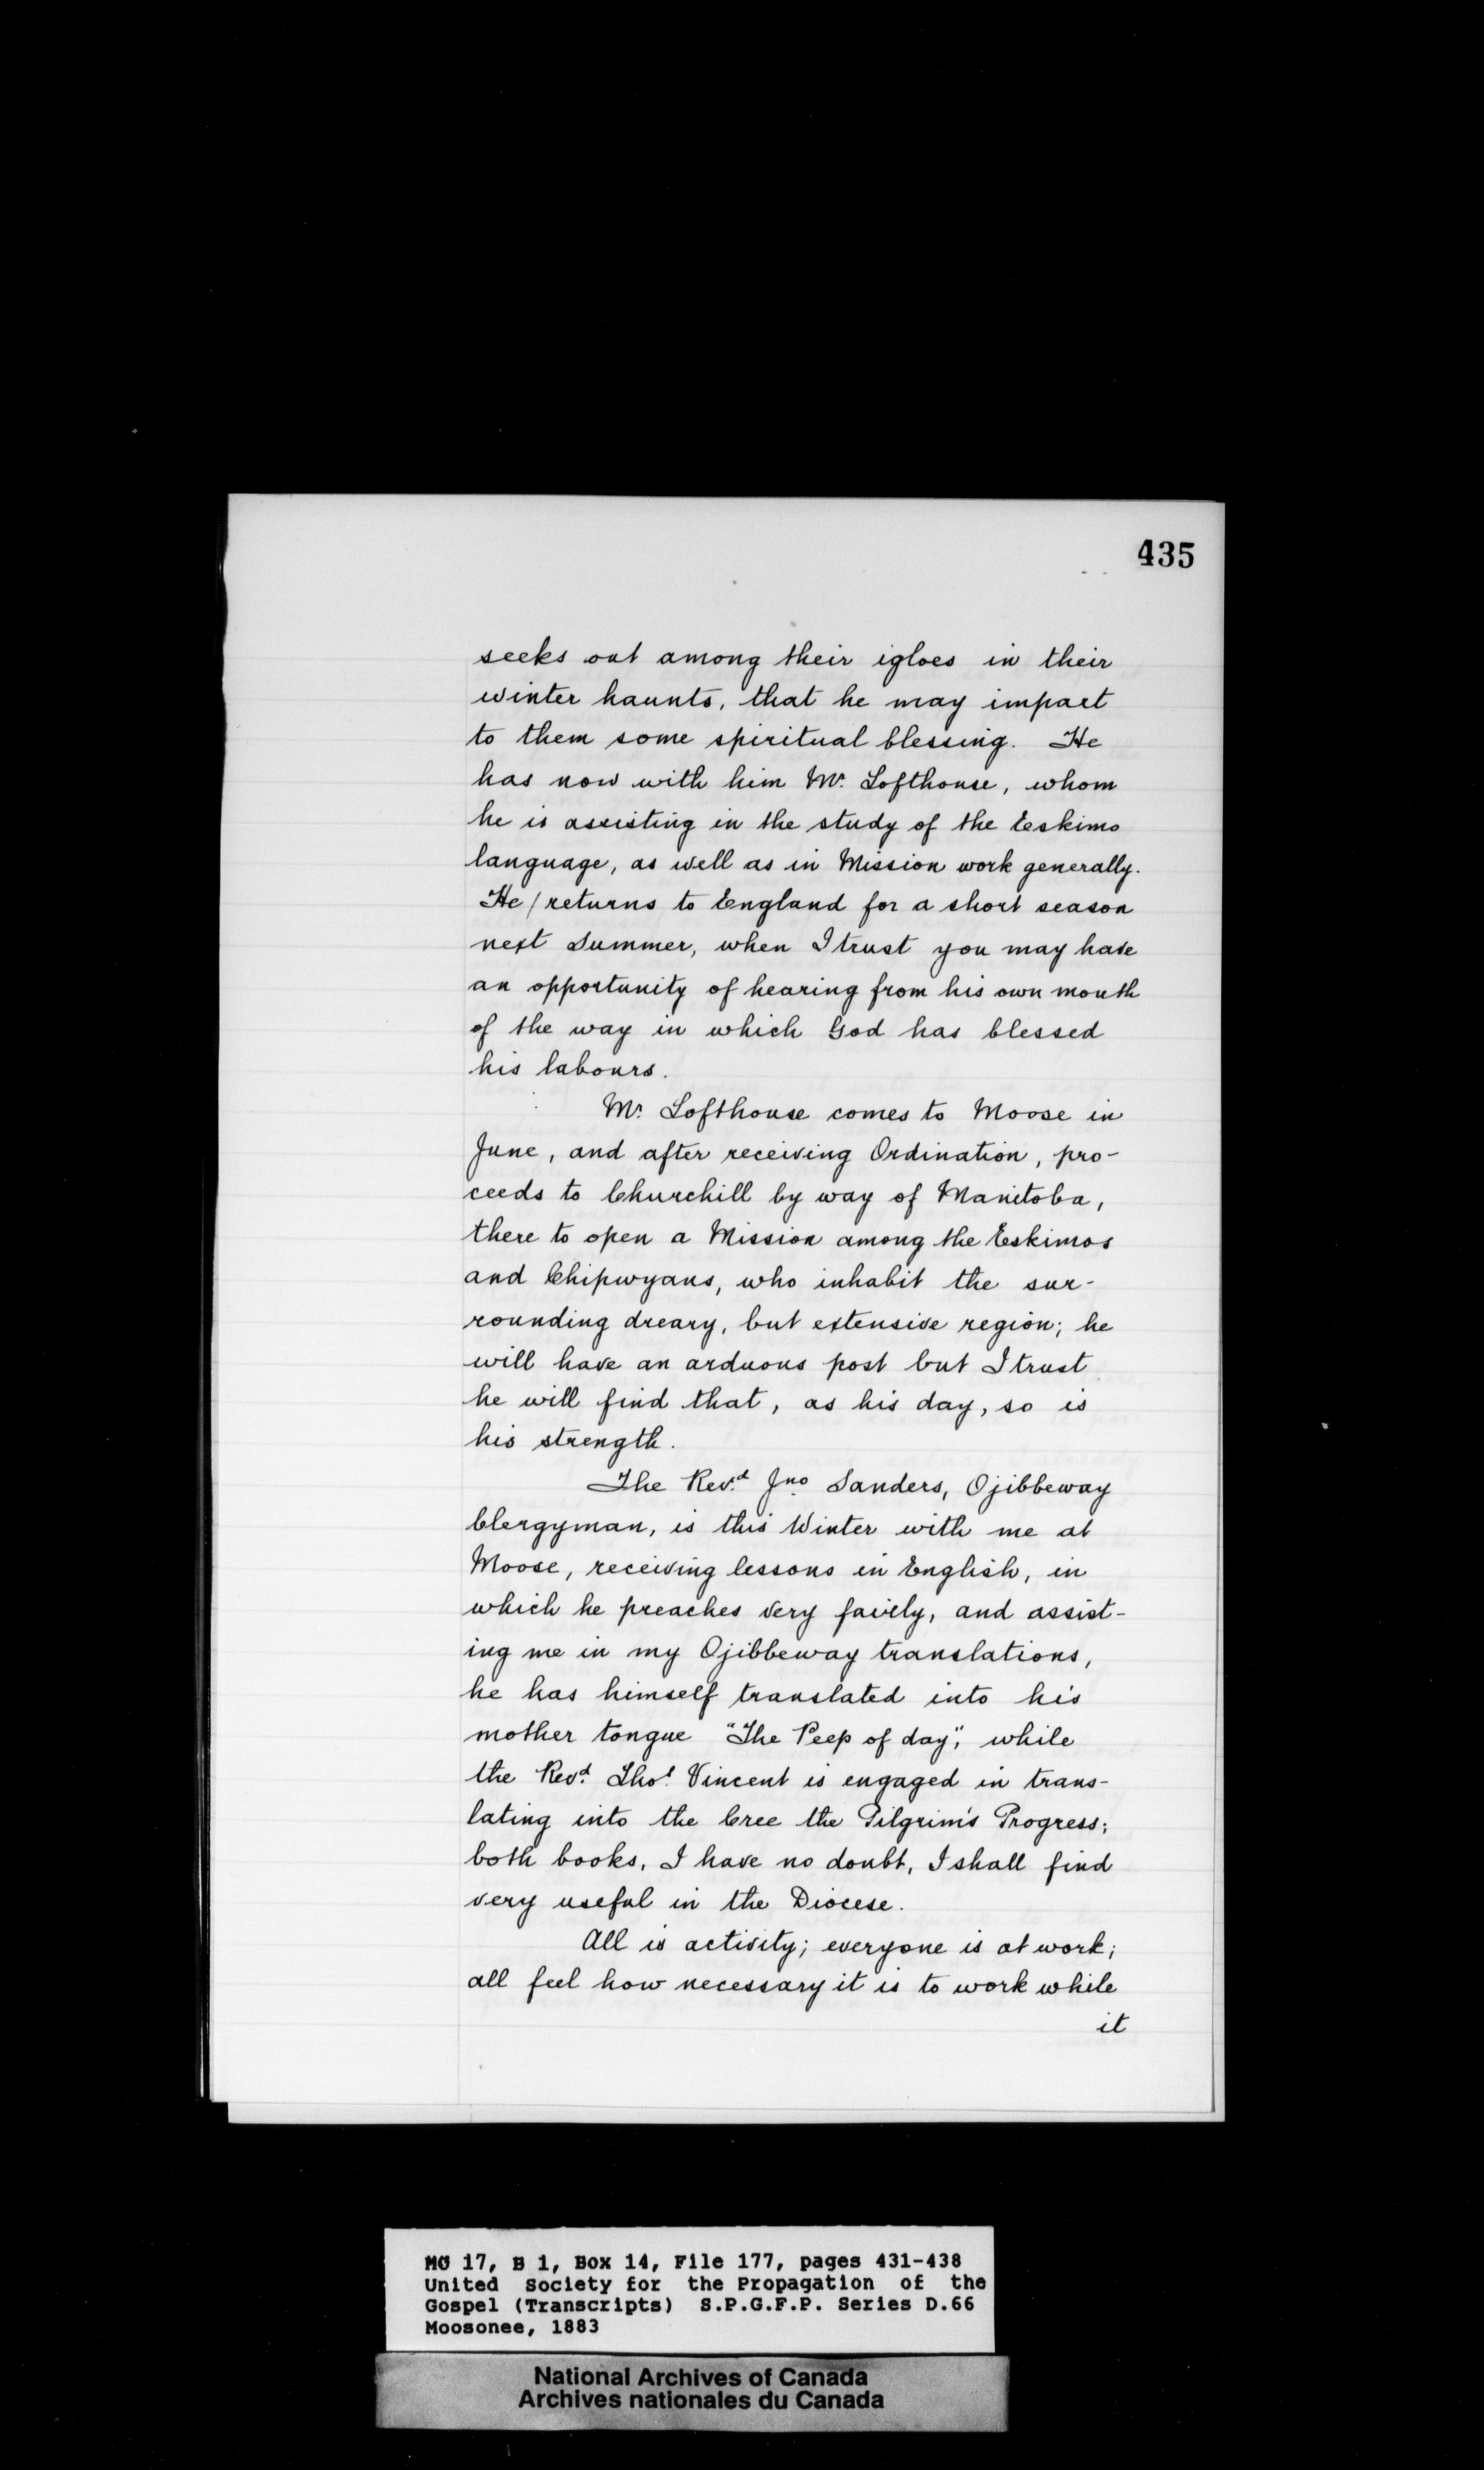 435
seeks out among their igloes in their
winter haunts, that he may impart
to them some spiritual blessing. He
has now with him Mr. Lofthouse, whom
he is assisting in the study of the Eskimo
language, as well as in Mission work generally.
He / returns to England for a short season
next Summer, when I trust you may have
an opportunity of hearing from his own mouth
of the way in which God has blessed
his labours.
Mr. Lofthouse comes to Moose in
June, and after receiving Ordination, pro-
ceeds to Churchill by way of Manitoba,
there to open a Mission among the Eskimos
and Chipwyans, who inhabit the sur-
rounding dreary, but extensive region; he
will have an arduous post but I trust
he will find that, as his day, so is
his strength.
The Revd. Jno. Sanders, Ojibbeway
Clergyman, is this Winter with me at
Moose, receiving lessons in English, in
which he preaches very fairly, and assist-
ing me in my Ojibbeway translations,
he has himself translated into his
mother tongue "The Peep of day", while
the Revd. Thos. Vincent is engaged in trans-
lating into the Cree the Pilgrim's Progress;
both books, I have no doubt, I shall find
very useful in the Diocese.
All is activity; everyone is at work;
all feel how necessary it is to work while
it
MG 17, B 1, Box 14, File 177, pages 431-438
United Society for the Propagation of the
Gospel (Transcripts) S.P.G.F.P. Series D.66
Moosonee, 1883
National Archives of Canada
Archives nationales du Canada